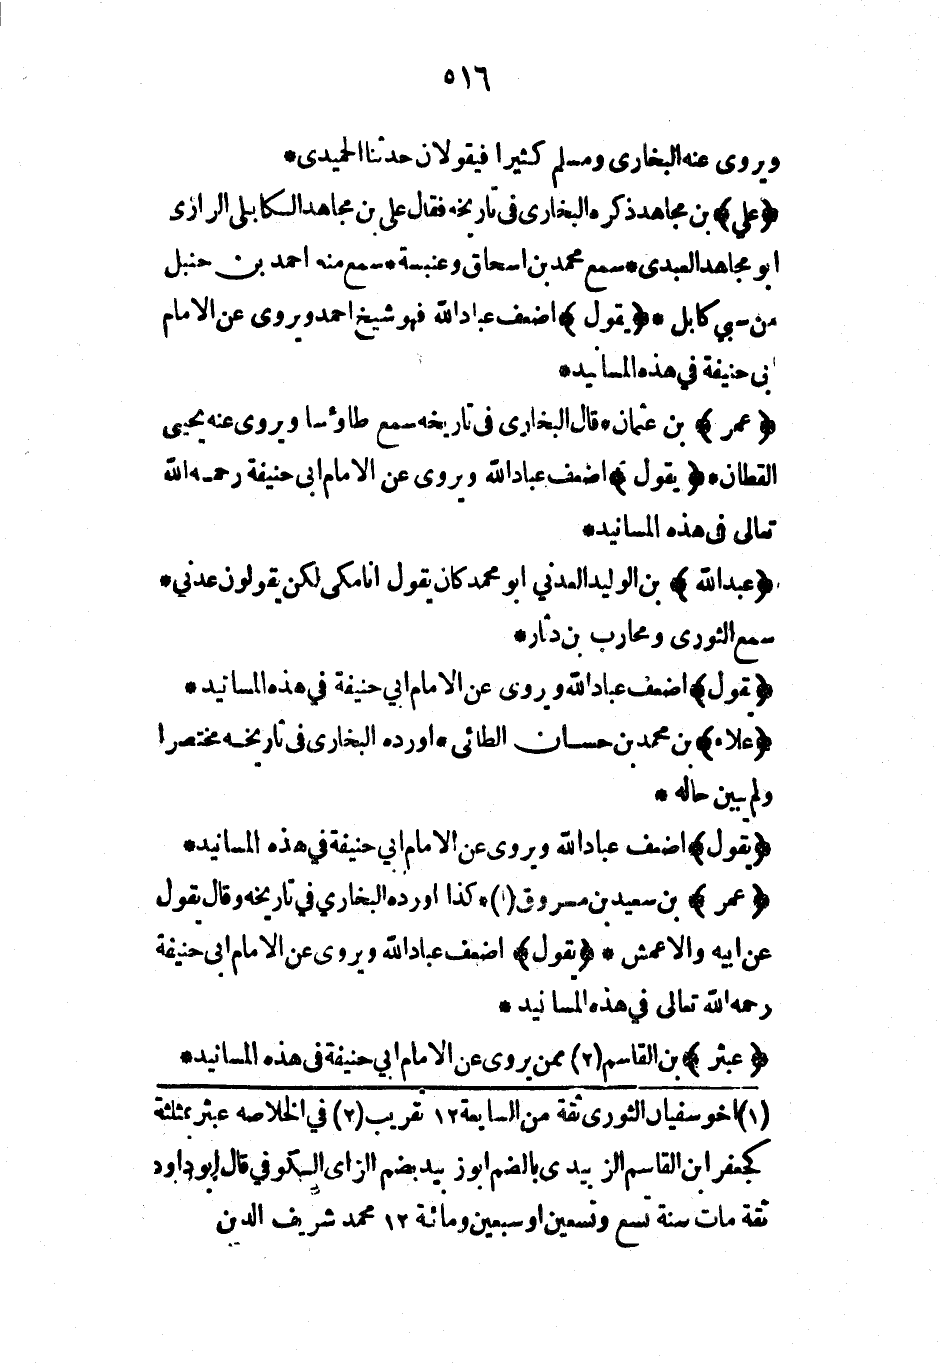 ٥١٦
ويروى عنه البخارى ومسلم كثيرا فيقولان حدثنا الحميدى*
﴿علي﴾ بن مجاهد ذكره البخارى فى تاريخه فقال على بن مجاهد الكابلى الرازى
ابو مجاهد العبدى* سمع محمد بن اسحاق وعنبسة* سمع منه احمد بن حنبل
من سبي كابل *﴿يقول﴾ اضعف عباد الله فهو شيخ احمد ويروى عن الامام
ابى حنيفة في هذه المسانيد*
﴿عمر﴾ بن عثمان* قال البخارى فى تاريخه سمع طاوٌسا ويروى عنه يحيى
القطان*﴿يقول﴾ اضعف عباد الله ويروى عن الامام ابى حنيفة رحمه الله
تعالى فى هذه المسانيد*
﴿عبد الله﴾ بن الوليد العدني ابو محمد كان يقول انا مكى لكن يقولون عدني*
سمع الثورى ومحارب بن دثار*
﴿يقول﴾ اضعف عباد الله ويروى عن الامام ابي حنيفة في هذه المسانيد*
﴿علاء﴾ بن محمد بن حسان الطائى* اورده البخارى فى تاريخه مختصرا
ولم يبين حاله *
﴿يقول﴾ اضعف عباد الله ويروى عن الامام ابي حنيفة في هذه المسانيد*
﴿عمر﴾ بن سعيد بن مسروق(١)* كذا اورده البخاري في تاريخه وقال يقول
عن ابيه والاعمش *﴿يقول﴾ اضعف عباد الله ويروى عن الامام ابى حنيفة
رحمه الله تعالى في هذه المسانيد *
﴿عبثر﴾ بن القاسم(٢) ممن يروى عن الامام ابي حنيفة فى هذه المسانيد*
(١) اخو سفيان الثورى ثقة من السابعة ١٢ تقريب (٢) في الخلاصه عبثر بمثلثة
كجعفر ابن القاسم الزبيدى بالضم ابو زبيد بضم الزاى الكوفي قال ابو داود
ثقة مات سنة تسع وتسعين او سبعين ومائة ١٢ محمد شريف الدين